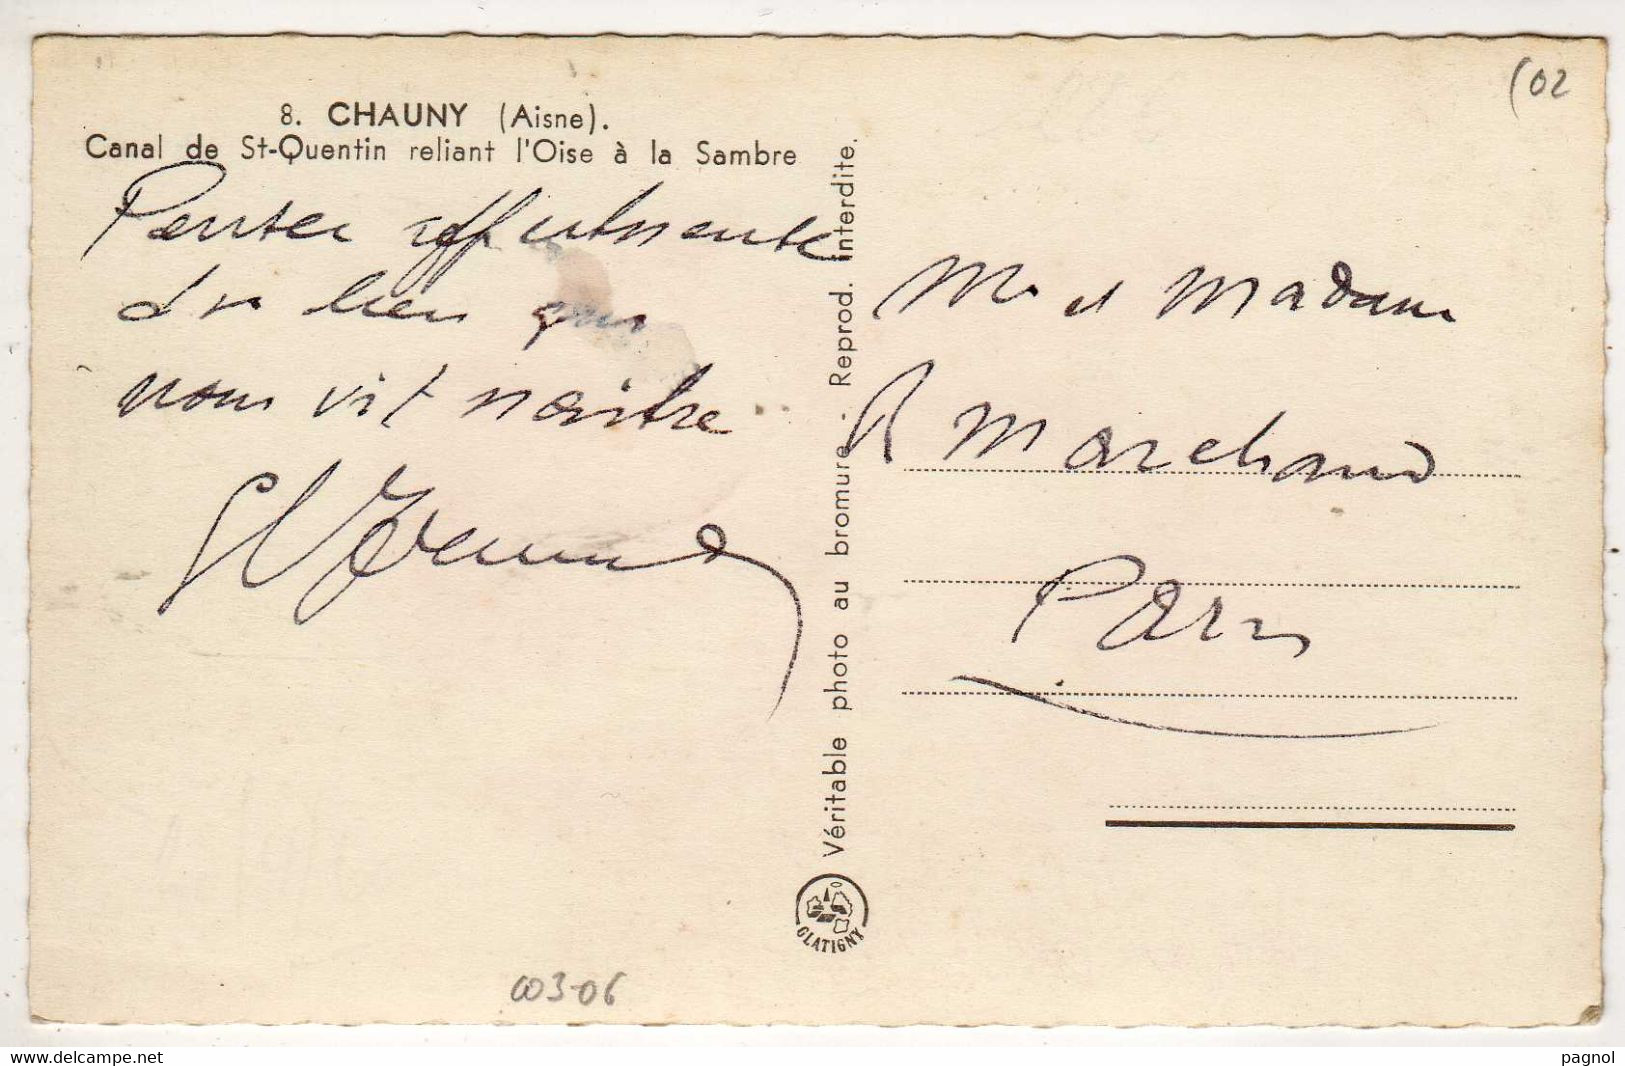 (02
8. CHAUNY (Aisne).
Canal de St-Quentin reliant l'Oise à la Sambre
Pensee affectueuse
du lieu qui
nous vit naitre
Mr et Madame
R Marchand
Paris
Véritable photo au bromure. Reprod. interdite.
GLATIGNY
003-06
delcampe.net
pagnol